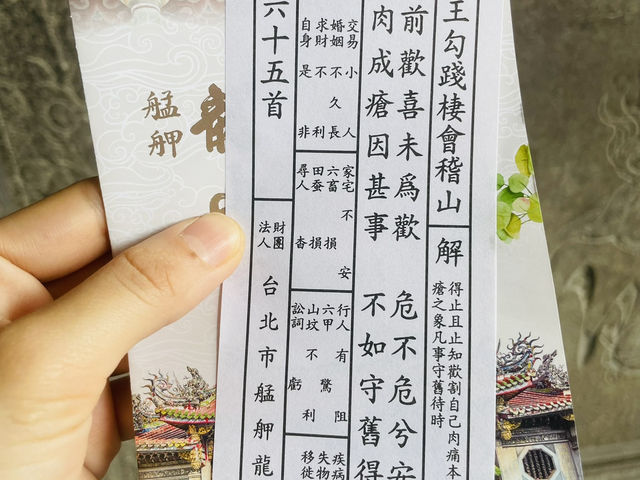 王勾踐棲會稽山
解
得止且止知歡割自己肉痛本
瘡之象凡事守舊待時
前歡喜未爲歡 危不危兮安
肉成瘡因甚事 不如守舊得
交易 小人
婚姻 不久長
求財 不利
自身 是非
家宅 不安
六畜 損
田蚕 損
尋人 杳
行人 有阻
六甲 驚
山坟 不利
訟詞 虧
疾病
失物
移徙
六十五首
財團
法人
台北市艋舺龍
艋舺